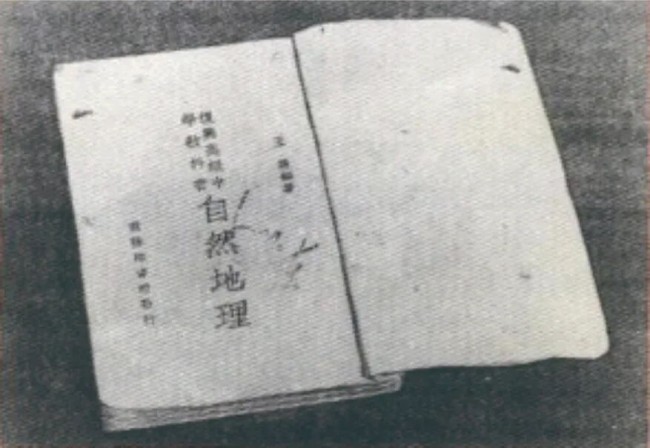 王編著
復興高級中
學教科書
自然地理
商務印書館發行